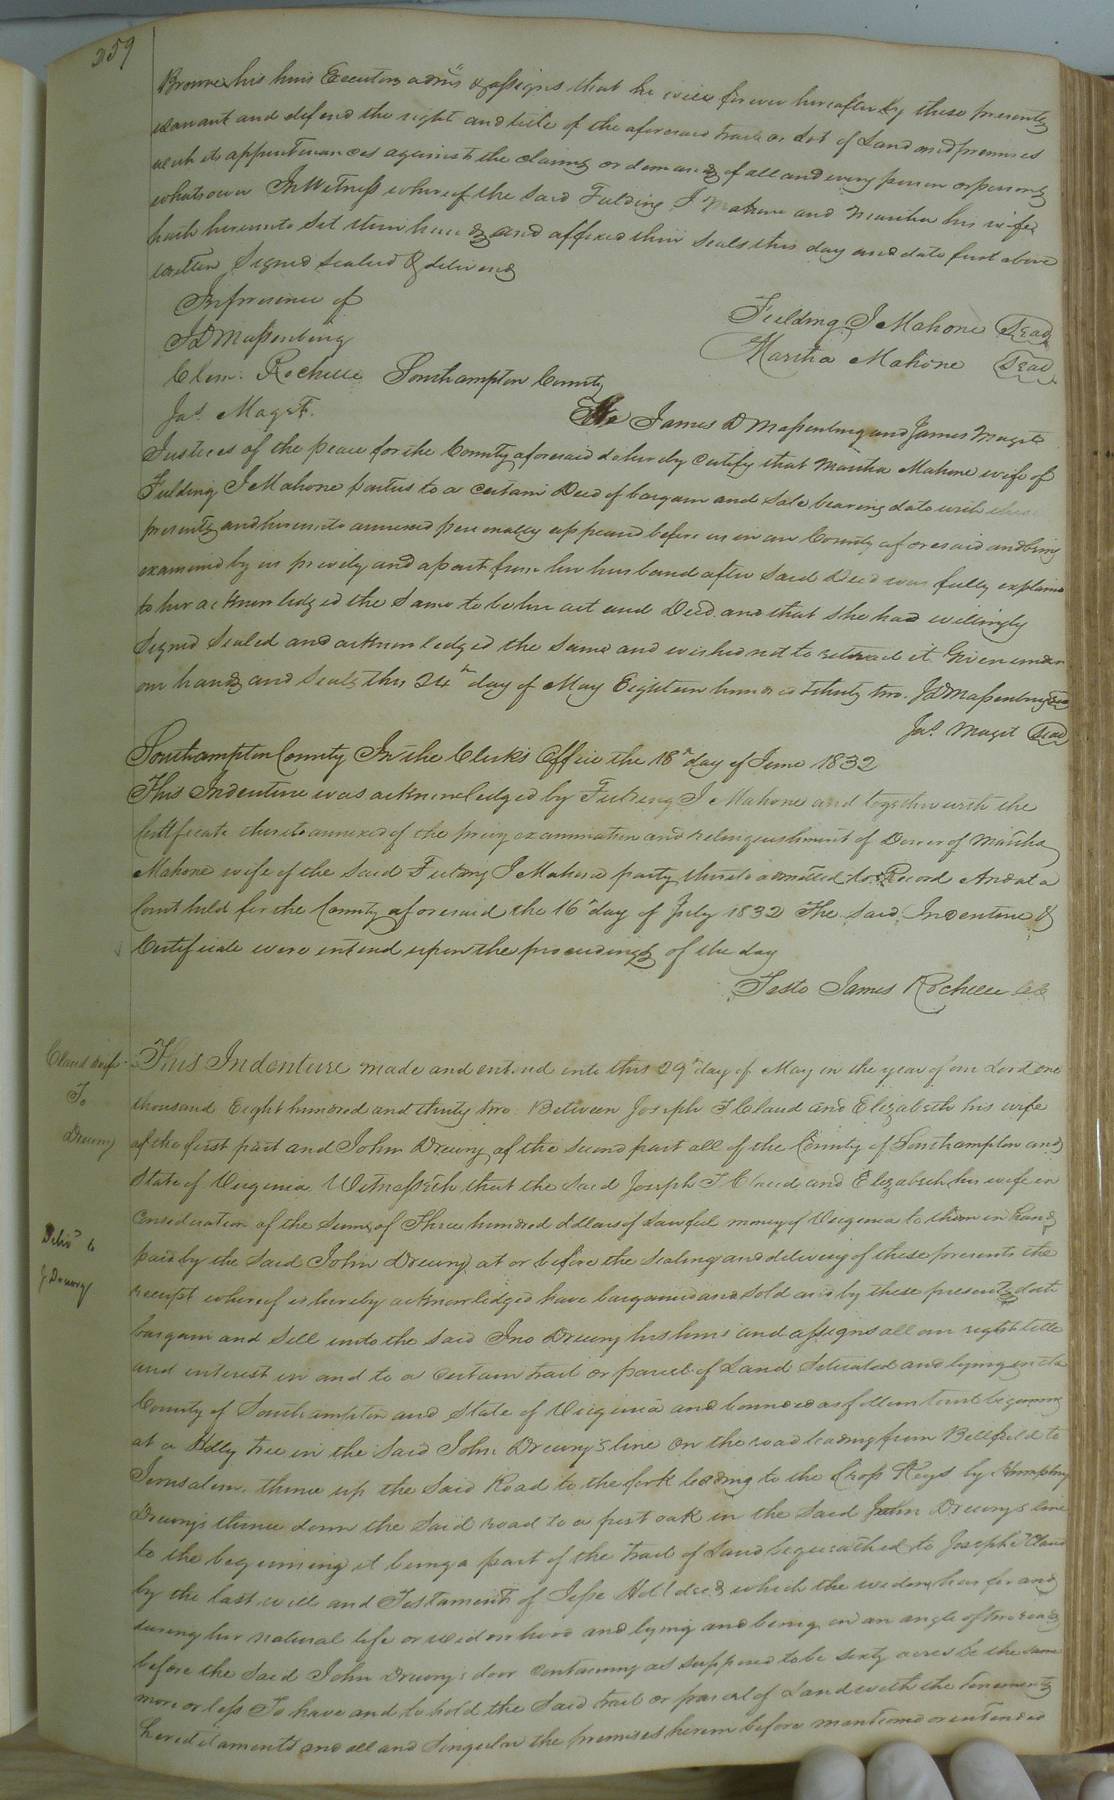 359
Browne his heirs Executors admrs & assigns that he will forever hereafter by these presents
warrant and defend the right and title of the aforesaid tract or Lot of Land and premises
with its appurtenances against the claims or demands of all and every person or persons
whatsoever In Witness whereof the said Fielding J Mahone and Martha his wife
hath hereunto set their hands and affixed their seals this day and date first above
written Signed Sealed & delivered
In presence of
JD Massenburg
Clem. Rochelle
Jas. Maget.
Fielding J Mahone Seal
Martha Mahone Seal
Southampton County
We James D Massenburg and James Maget
Justices of the peace for the County aforesaid do hereby certify that Martha Mahone wife of
Fielding J Mahone parties to a certain Deed of bargain and Sale bearing date with these
presents and hereunto annexed personally appeared before us in our County aforesaid and being
examined by us privily and apart from her husband after said Deed was fully explained
to her acknowledged the same to be her act and Deed and that she had willingly
Signed Sealed and acknowledged the same and wished not to retract it Given under
our hands and Seals this 24th day of May Eighteen hundred thirty two. JD Massenburg Seal
Jas. Maget Seal
Southampton County In the Clerks Office the 18th day of June 1832
This Indenture was acknowledged by Fielding J Mahone and together with the
Certificate thereto annexed of the privy examination and relinquishment of Dower of Martha
Mahone wife of the said Fielding J Mahone party thereto admitted to Record And at a
Court held for the County aforesaid the 16th day of July 1832 The Said Indenture &
Certificate were entered upon the proceedings of the day
Teste James Rochelle
Claud & wife
To
Drewry
Delivd to
J Drewry
This Indenture made and entered into this 29th day of May in the year of our Lord one
thousand Eight hundred and thirty two Between Joseph T Claud and Elizabeth his wife
of the first part and John Drewry of the second part all of the County of Southampton and
State of Virginia Witnesseth that the said Joseph T Claud and Elizabeth his wife in
Consideration of the Sum of Three hundred dollars of Lawful money of Virginia to them in hand
paid by the said John Drewry at or before the sealing and delivery of these presents the
receipt whereof is hereby acknowledged have bargained and sold and by these presents doth
bargain and sell unto the said Jno Drewry his heirs and assigns all our right title
and interest in and to a certain tract or parcel of Land Situated and lying in the
County of Southampton and State of Virginia and bounded as follows to wit beginning
at a Holly tree in the said John Drewry's line on the road leading from Bellfield to
Jerusalem. thence up the said Road to the fork leading to the Cross Keys by Humphry
Drewry's thence down the said road to a post oak in the said John Drewrys line
to the beginning it being a part of the tract of Land bequeathed to Joseph T Claud
by the last will and Testament of Jesse Holt decd which the widow has for and
during her natural life or widowhood and lying and being in an angle of two roads
before the said John Drewry's door Containing as supposed to be sixty acres be the same
more or less To have and to hold the said tract or parcel of Land with the tenements
hereditaments and all and singular the premises herein before mentioned or intended